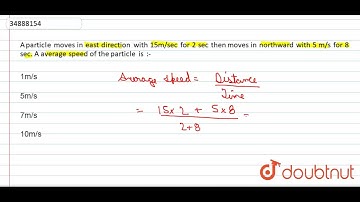 34888154
A particle moves in east direction with 15m/sec for 2 sec then moves in northward with 5 m/s for 8
sec. A average speed of the particle is :-
1m/s
5m/s
7m/s
10m/s
Average speed = Distance
Time
= 15 x 2 + 5 x 8 =
2+8
doubtnut